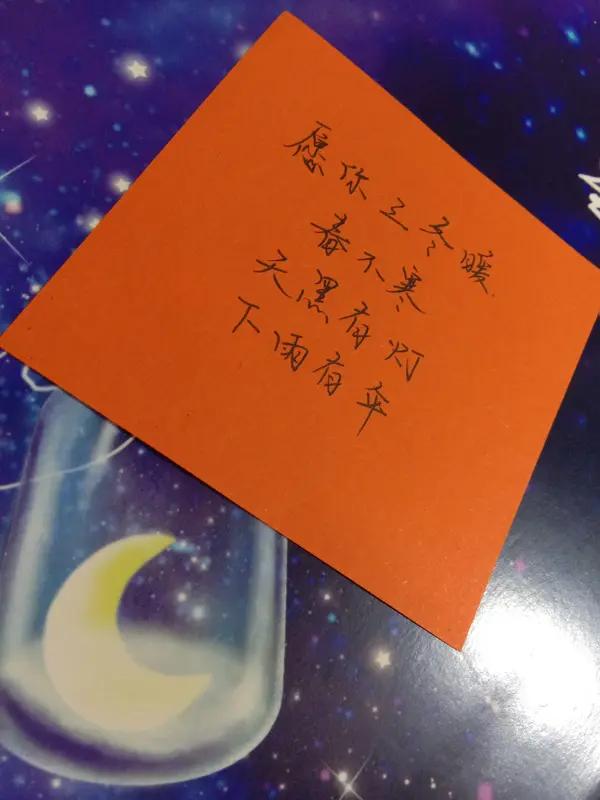 愿你三冬暖
春不寒
天黑有灯
下雨有伞